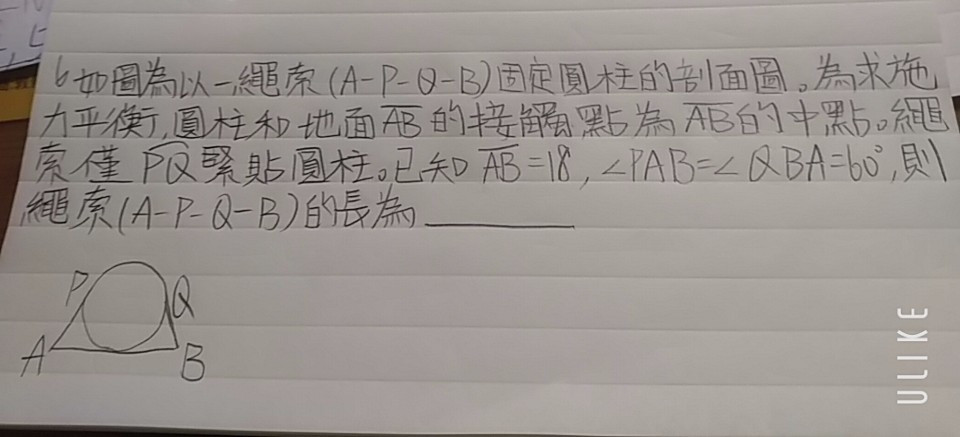 6 如圖為以一繩索(A-P-Q-B)固定圓柱的剖面圖。為求施
力平衡,圓柱和地面AB的接觸點為AB的中點。繩
索僅PQ緊貼圓柱。已知AB=18,∠PAB=∠QBA=60°,則
繩索(A-P-Q-B)的長為______
P
Q
A
B
ULIKE